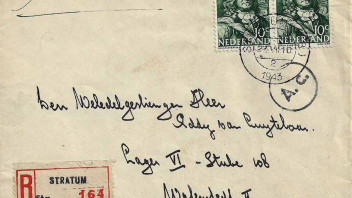 10c 10c
NEDERLAND NEDERLAND
1943
A.C.
Den Weledelgestrengen Heer
Eddy van
Lager VI - Stube 108
R STRATUM
164